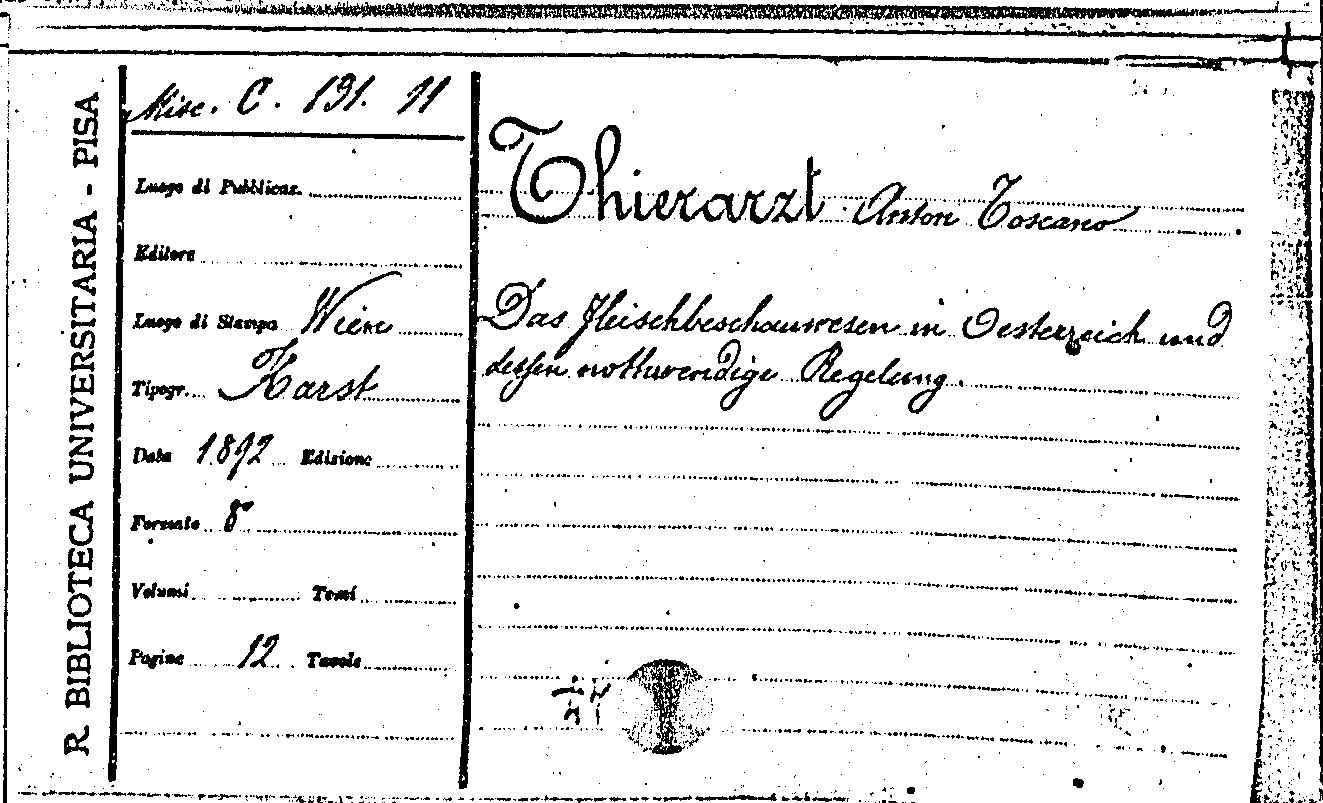 R. BIBLIOTECA UNIVERSITARIA - PISA
Misc. C. 131. 11
Luogo di Pubblicaz.
Editore
Luogo di Stampa Wien
Tipogr. Karst
Data 1892 Edizione
Formato 8°
Volumi Tomi
Pagine 12 Tavole
Thierarzt Anton Toscano
Das Fleischbeschauwesen in Oesterreich und
dessen nothwendige Regelung.